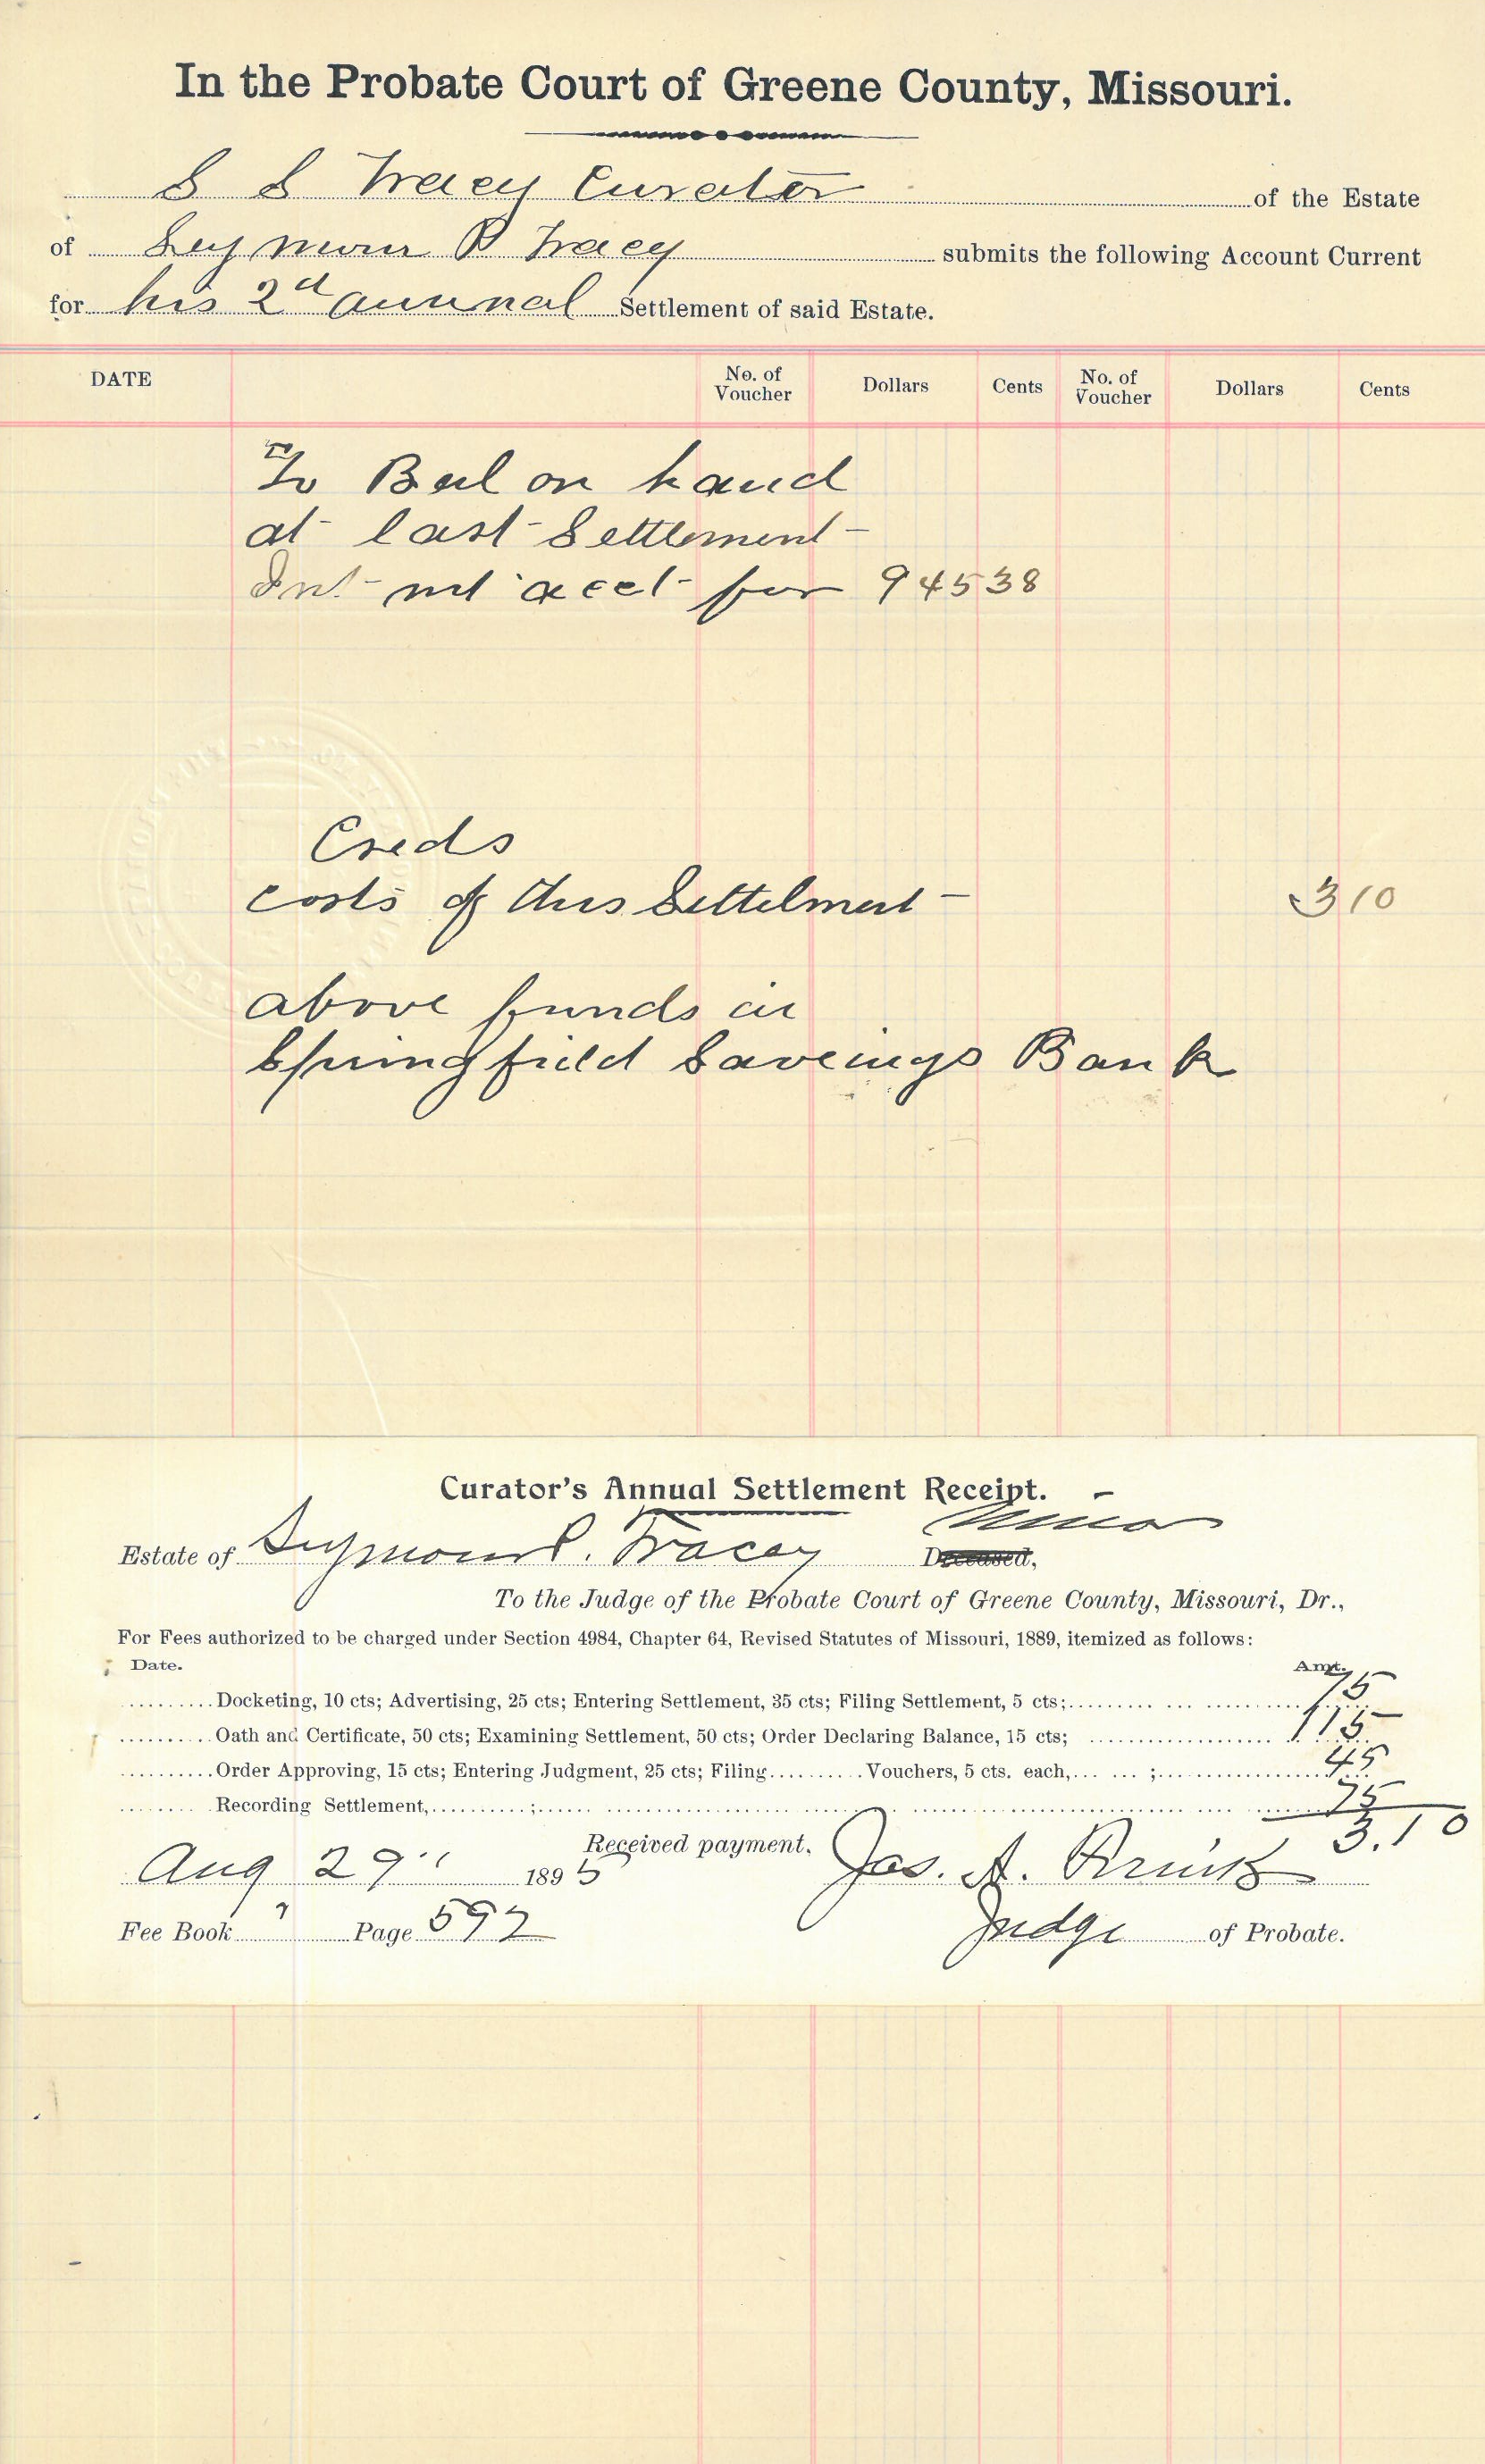 In the Probate Court of Greene County, Missouri.
S S Tracy Curator of the Estate
of Seymour P Tracy submits the following Account Current
for his 2d annual Settlement of said Estate.
DATE No. of Voucher Dollars Cents No. of Voucher Dollars Cents
To Bal on hand
at last Settlement
Int not acct for 945 38
Creds
costs of this Settelment 3 10
above funds in
Springfield Saveings Bank
Curator's Annual Settlement Receipt.
Minor
Estate of Seymour P. Tracey Deceased,
To the Judge of the Probate Court of Greene County, Missouri, Dr.,
For Fees authorized to be charged under Section 4984, Chapter 64, Revised Statutes of Missouri, 1889, itemized as follows:
Date. Amt.
Docketing, 10 cts; Advertising, 25 cts; Entering Settlement, 35 cts; Filing Settlement, 5 cts; 75
Oath and Certificate, 50 cts; Examining Settlement, 50 cts; Order Declaring Balance, 15 cts; 115
Order Approving, 15 cts; Entering Judgment, 25 cts; Filing Vouchers, 5 cts. each, ; 45
Recording Settlement, ; 75
3.10
Received payment,
Aug 29" 1895 Jas. A.
Fee Book Page 592 Judge of Probate.